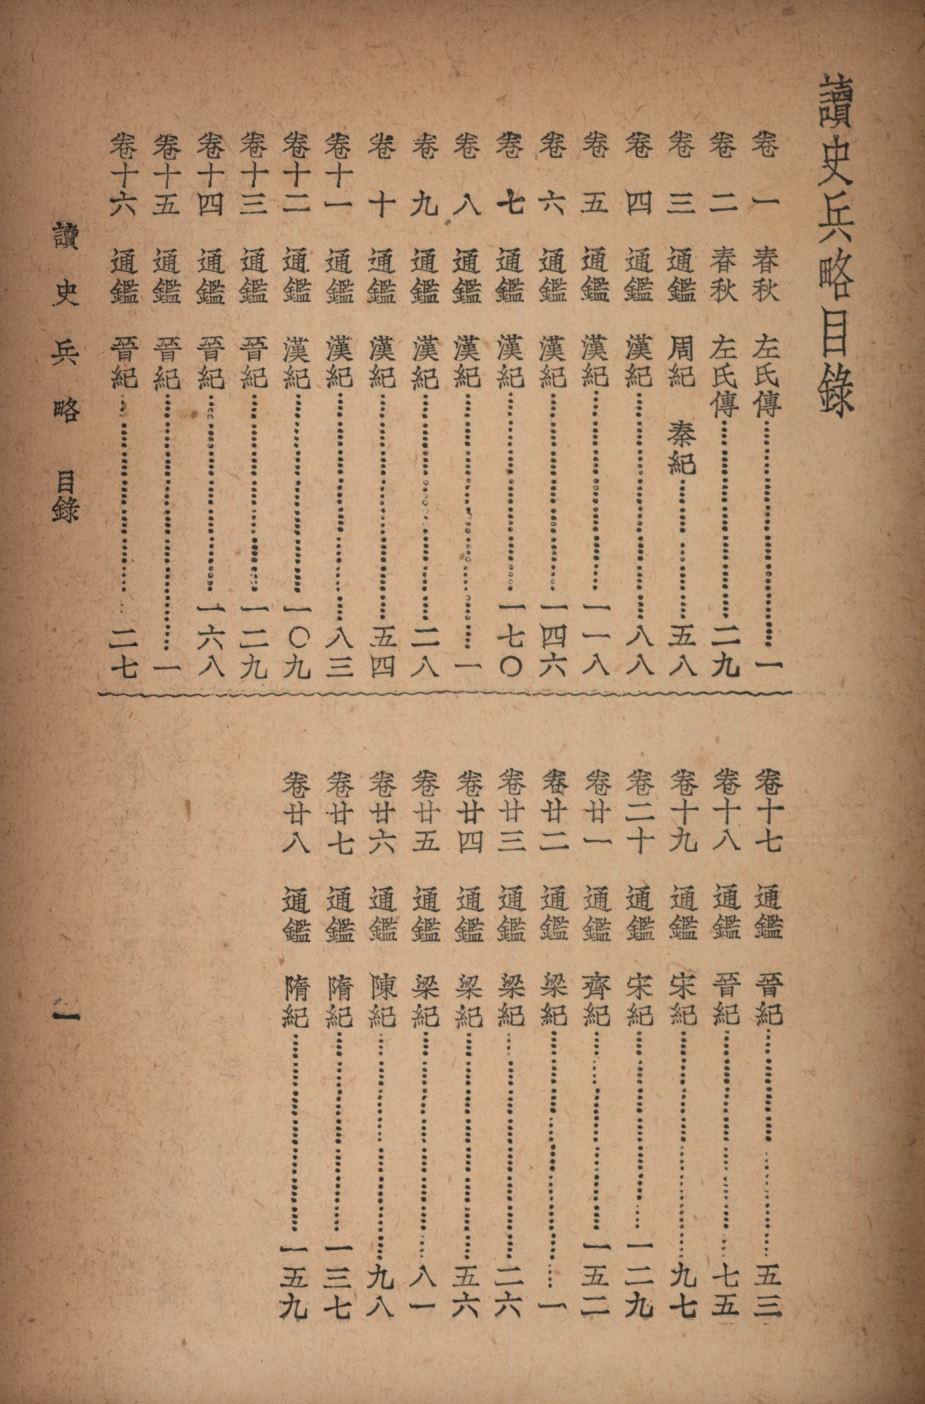 讀史兵略目錄
卷一 春秋 左氏傳……一
卷二 春秋 左氏傳……二九
卷三 通鑑 周紀 秦紀……五八
卷四 通鑑 漢紀……八八
卷五 通鑑 漢紀……一一八
卷六 通鑑 漢紀……一四六
卷七 通鑑 漢紀……一七〇
卷八 通鑑 漢紀……一
卷九 通鑑 漢紀……二八
卷十 通鑑 漢紀……五四
卷十一 通鑑 漢紀……八三
卷十二 通鑑 漢紀……一〇九
卷十三 通鑑 晉紀……一二九
卷十四 通鑑 晉紀……一六八
卷十五 通鑑 晉紀……一
卷十六 通鑑 晉紀……二七
卷十七 通鑑 晉紀……五三
卷十八 通鑑 晉紀……七五
卷十九 通鑑 宋紀……九七
卷二十 通鑑 宋紀……一二九
卷廿一 通鑑 齊紀……一五二
卷廿二 通鑑 梁紀……一
卷廿三 通鑑 梁紀……二六
卷廿四 通鑑 梁紀……五六
卷廿五 通鑑 梁紀……八一
卷廿六 通鑑 陳紀……九八
卷廿七 通鑑 隋紀……一三七
卷廿八 通鑑 隋紀……一五九
讀史兵略 目錄 一